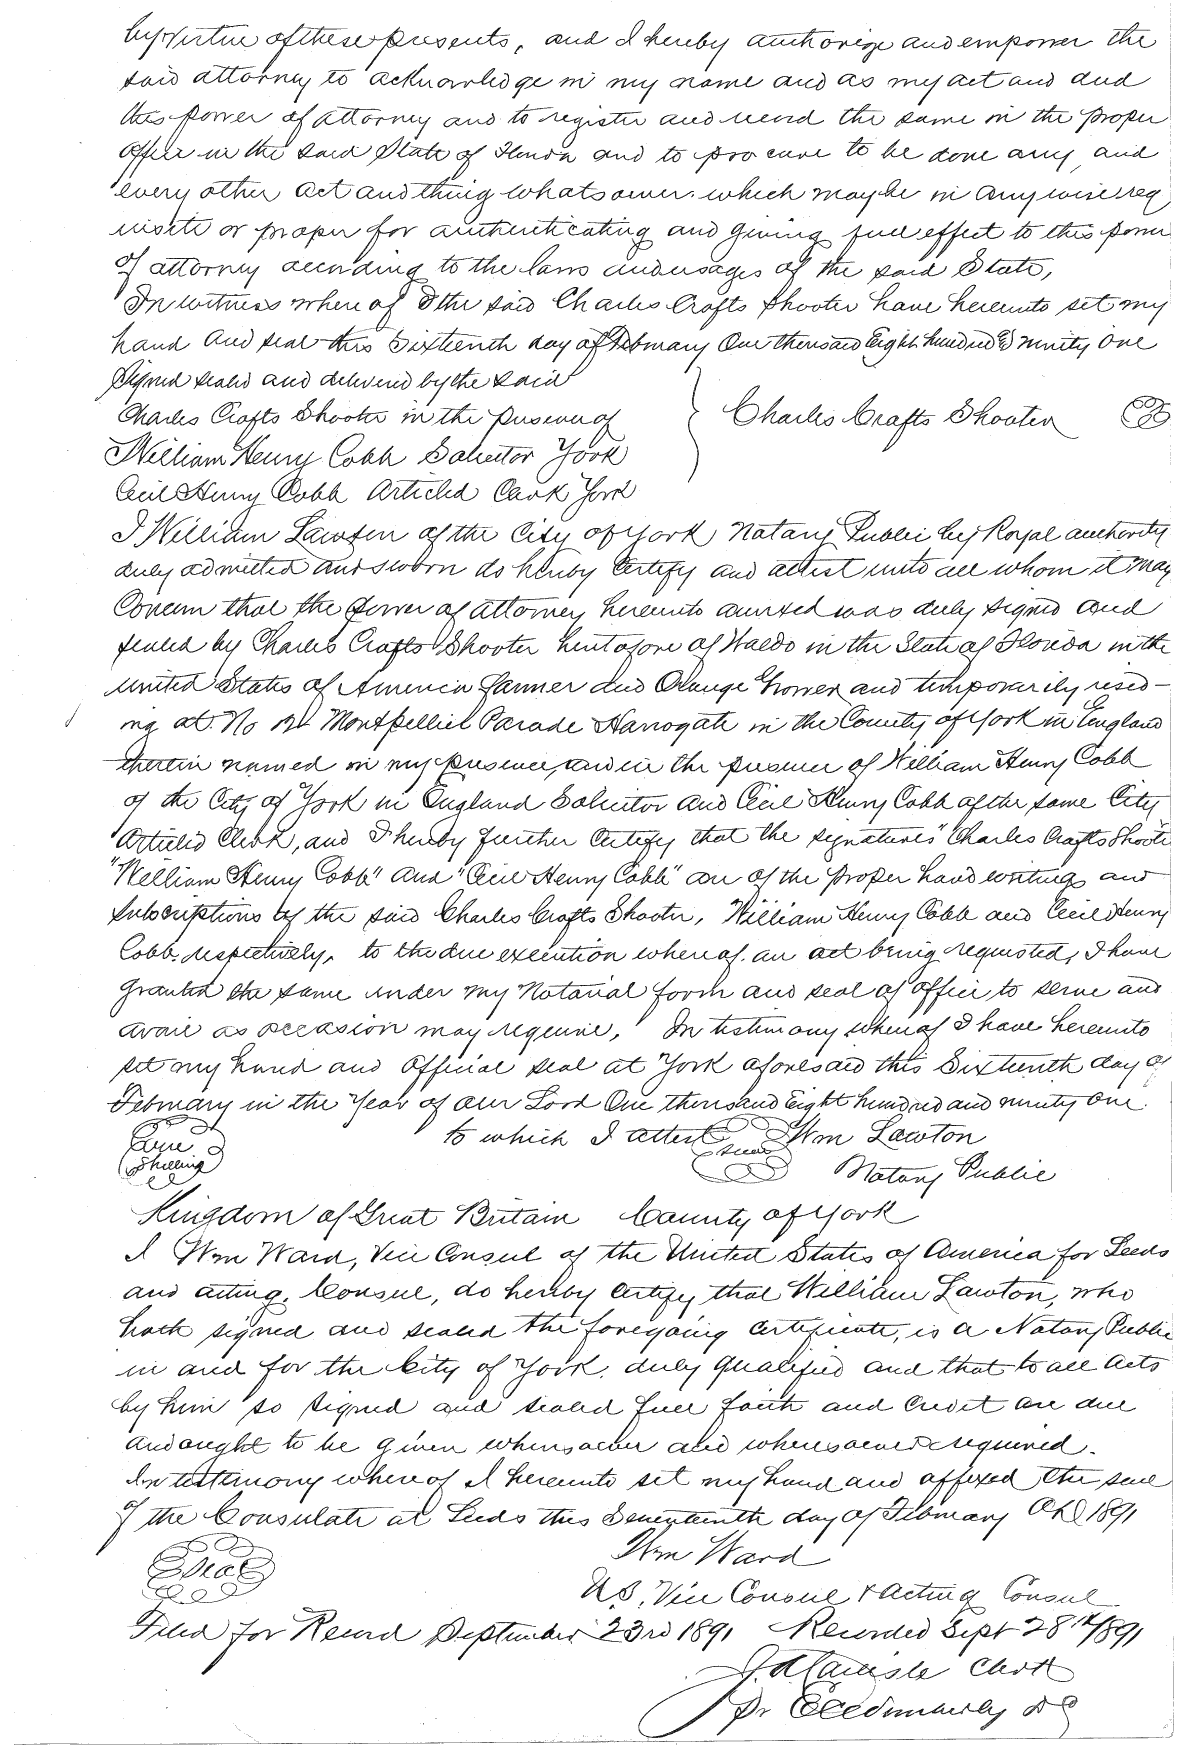 by virtue of these presents, and I hereby authorize and empower the
said attorney to acknowledge in my name and as my act and deed
this power of attorney and to register and record the same in the proper
office in the said State of Florida and to procure to be done any and
every other act and thing whatsoever which may be in anywise req
uisite or proper for authenticating and giving full effect to this power
of attorney according to the laws and usages of the said State,
In witness whereof I the said Charles Crafts Shooter have hereunto set my
hand and seal this Sixteenth day of February One thousand Eight hundred & ninety one
Signed sealed and delivered by the said
Charles Crafts Shooter in the presence of
Charles Crafts Shooter
William Henry Cobb Solicitor York
Cecil Henry Cobb Articled Clerk York
I William Lawton of the City of York Notary Public by Royal authority
duly admitted and sworn do hereby Certify and attest unto all whom it may
Concern that the power of attorney hereunto annexed was duly signed and
sealed by Charles Crafts Shooter heretofore of Waldo in the State of Florida in the
United States of America Farmer and Orange Grower and temporarily resid-
ing at No Montpellier Parade Harrogate in the County of York in England
therein named in my presence, and in the presence of William Henry Cobb
of the City of York in England Solicitor and Cecil Henry Cobb of the same City
Articled Clerk, and I hereby further Certify that the signatures "Charles Crafts Shooter
"William Henry Cobb" and "Cecil Henry Cobb" are of the proper hand writings and
Subscriptions of the said Charles Crafts Shooter, William Henry Cobb and Cecil Henry
Cobb respectively, to the due execution whereof an act being requested, I have
Granted the same under my Notarial form and seal of Office to serve and
avail as occasion may require. In testimony whereof I have hereunto
set my hand and Official seal at York aforesaid this Sixteenth day of
February in the Year of our Lord One thousand Eight hundred and ninety one.
to which I attest Seal Wm Lawton
One
Shilling
Notary Public
Kingdom of Great Britain County of York
I Wm Ward, Vice Consul of the United States of America for Leeds
and acting Consul, do hereby Certify that William Lawton, who
hath signed and sealed the foregoing certificate, is a Notary Public
in and for the City of York, duly qualified and that to all Acts
by him so signed and sealed full faith and Credit are due
and ought to be given whensoever and wheresoever required.
In testimony whereof I hereunto set my hand and affixed the seal
of the Consulate at Leeds this Seventeenth day of February AD 1891
Wm Ward
Seal
U.S. Vice Consul & Acting Consul
Filed for Record September 23rd 1891 Recorded Sept 28th 1891
Clerk
Pr DC